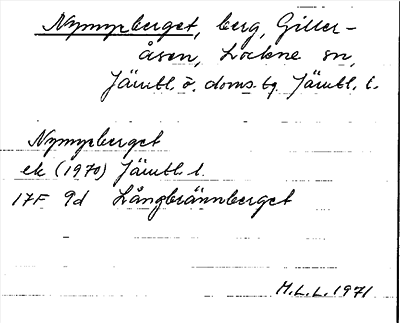 Nymyrberget, berg, Giller-
åsen, Lockne sn,
Jämtl. ö. doms. bg. Jämtl. l.
Nymyrberget
ek (1970) Jämtl. l.
17F 9d Långbrännberget
H.L.L. 1971